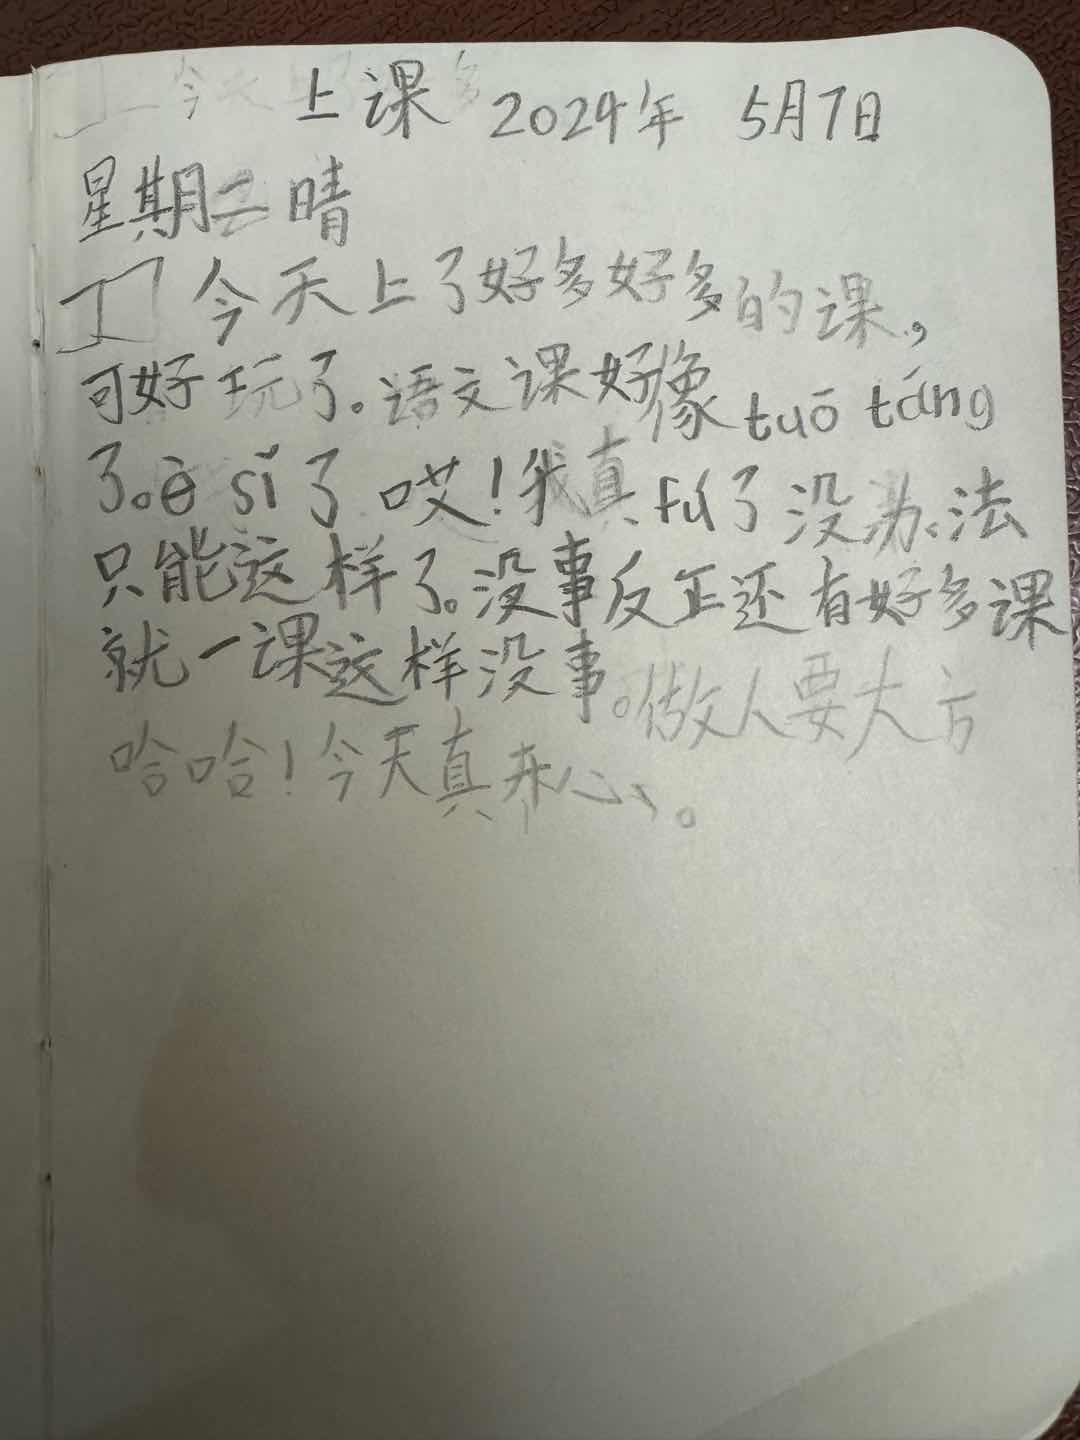 上课 2024年 5月7日
星期二 晴
今天上了好多好多的课，
可好玩了。语文课好像tuō táng
了。è sǐ了 哎！我真fú了没办法
只能这样了。没事反正还有好多课
就一课这样没事。做人要大方
哈哈！今天真开心、。